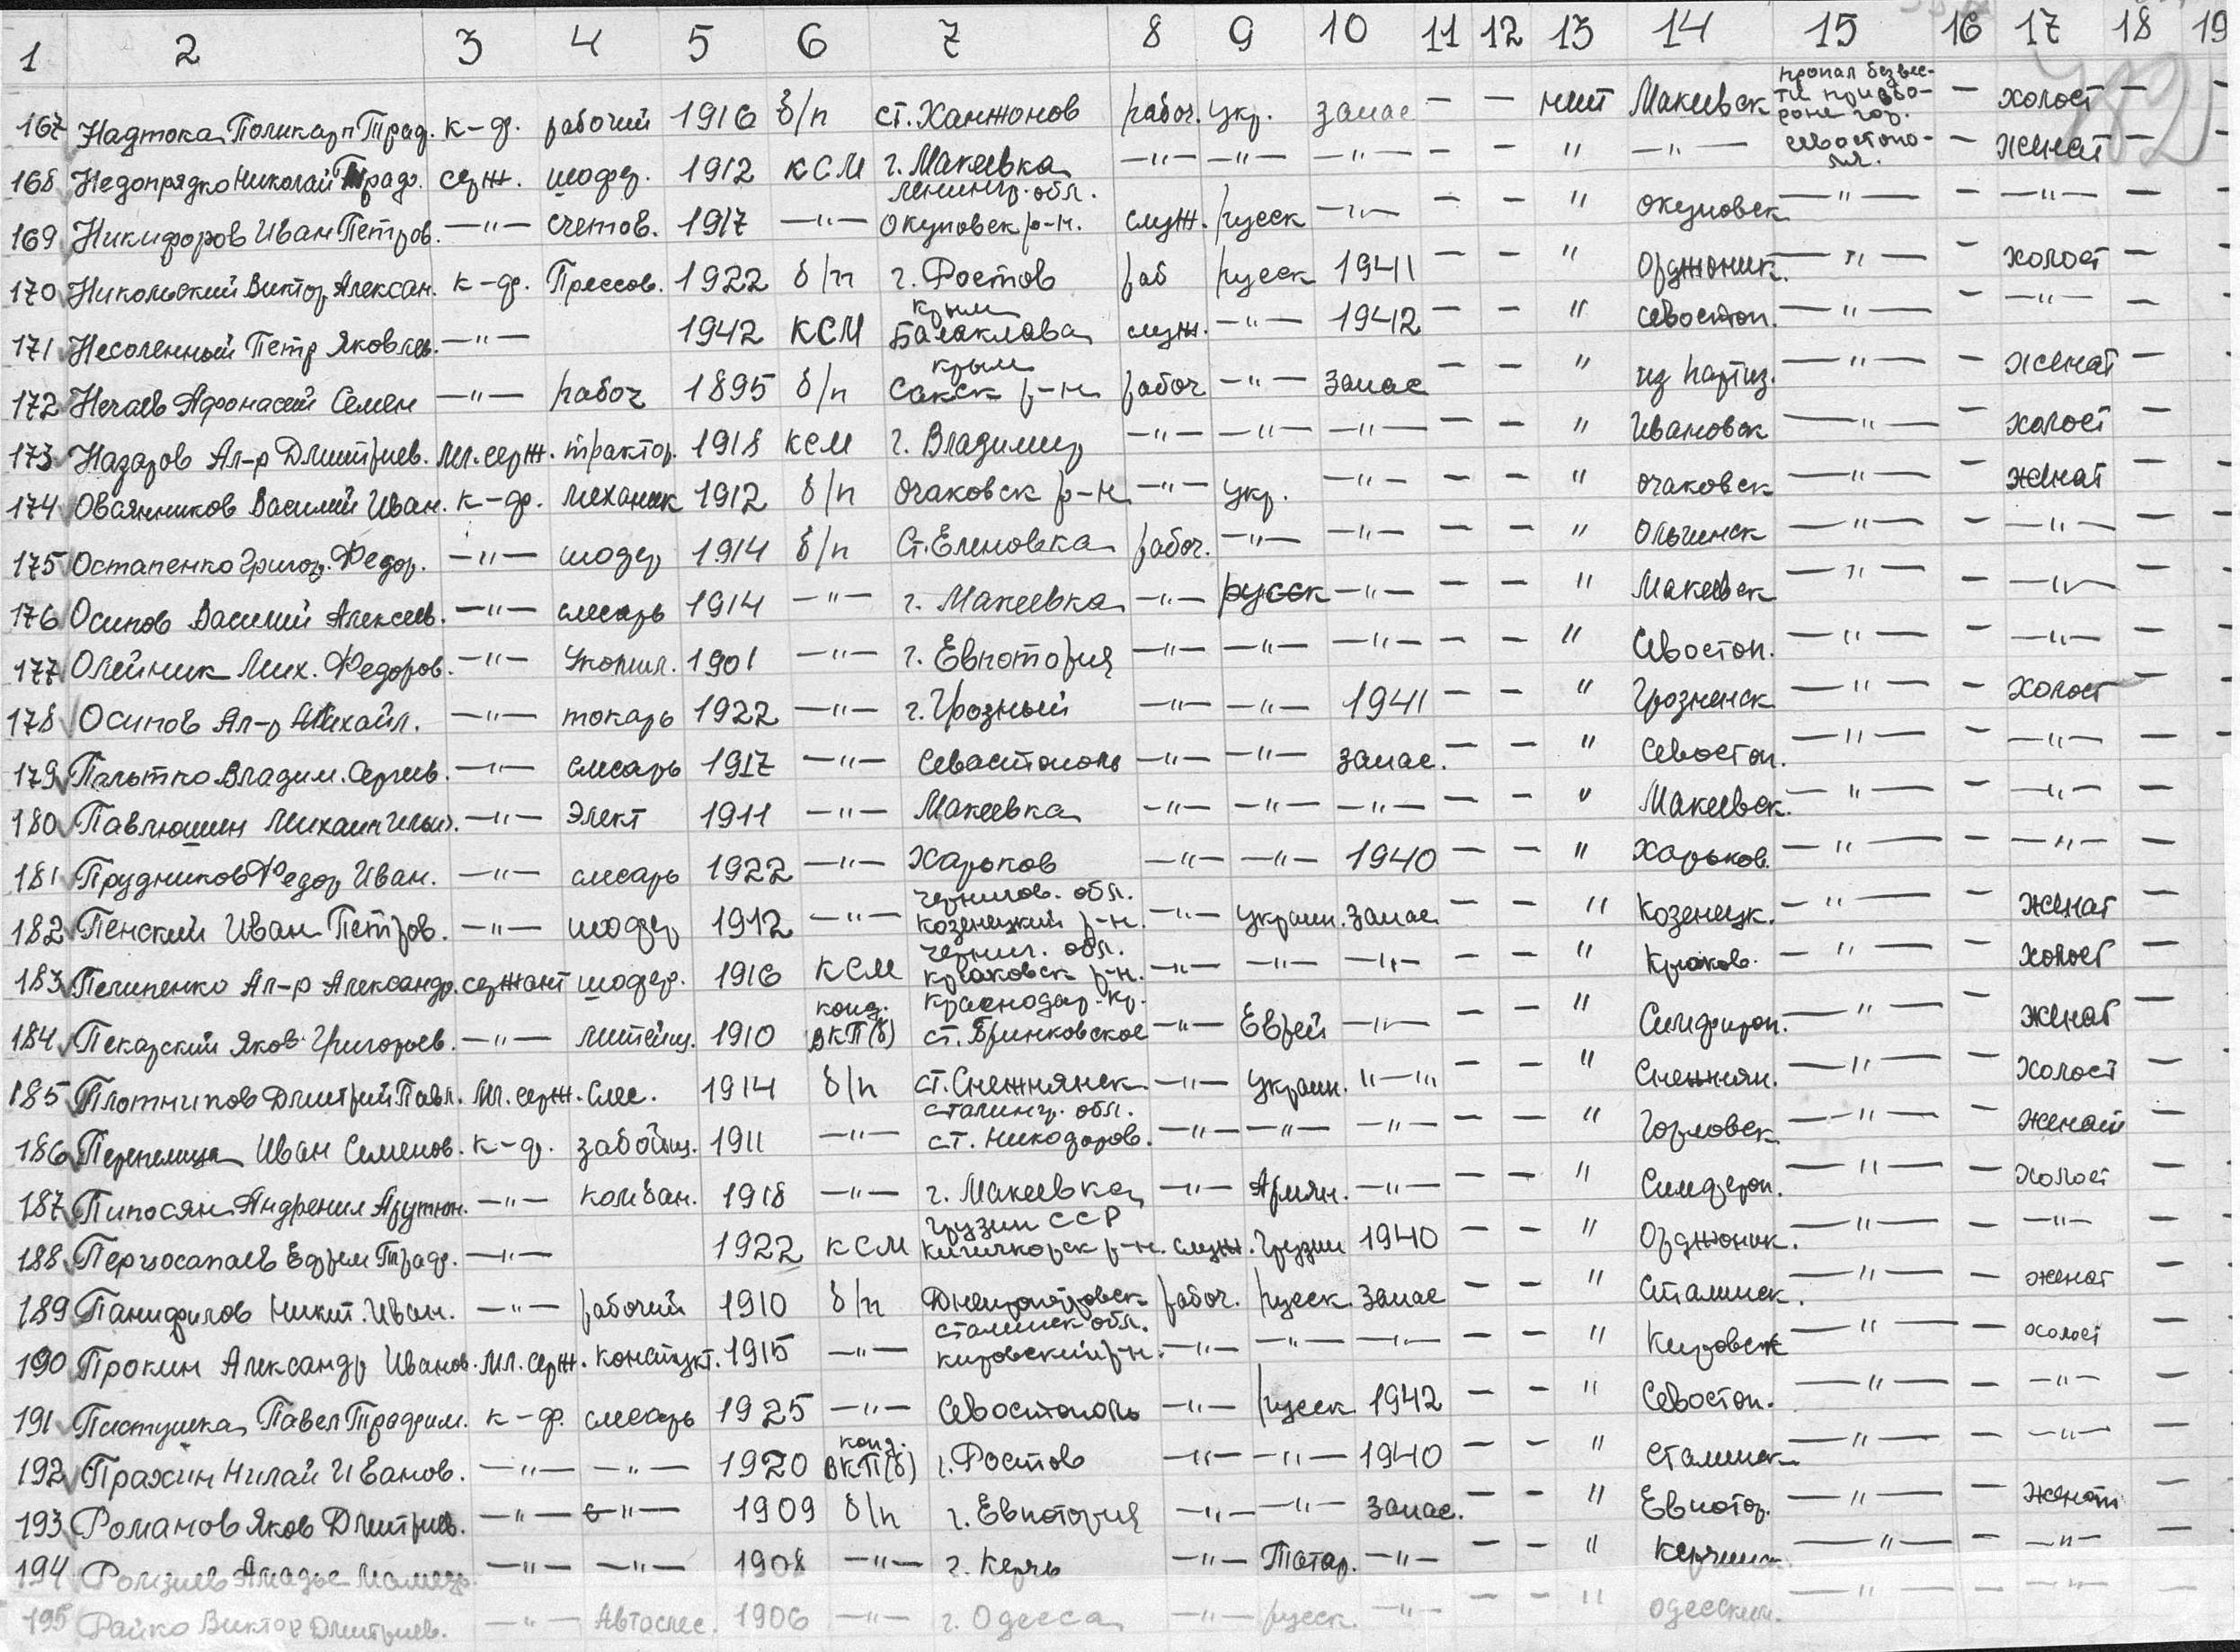 1 2 3 4 5 6 7 8 9 10 11 12 13 14 15 16 17 18 19
167 Надтока Поликарп Трад. к-др. рабочий 1916 б/п ст. Ханжонов рабоч. укр. запас — — нит Макеевск пропал безвес-ти при обо-роне гор. Севостопо-ля. — холост —
168 Недопрядко Николай Традр. серж. шофер. 1912 КСМ г. Макеевка —"— —"— —"— — — " —"— — женат —
169 Никифоров Иван Петров. —"— счетов. 1917 —"— Ленингр. обл. Окуловск р-н. служ. русск —"— — — " Окуловск —"— — —"— —
170 Никольский Виктор Алексан. к-др. Прессов. 1922 б/п г. Ростов раб русск 1941 — — " Орджоник. —"— — холост —
171 Несоленный Петр Яковлев. —"— 1942 КСМ Крым Балаклава служ. —"— 1942 — — " Севостоп. —"— — —"— —
172 Нечаев Афонасий Семен —"— рабоч 1895 б/п Крым Сакск р-н рабоч —"— запас — — " из партиз. —"— — женат —
173 Назаров Ал-р Дмитриев. Мл. серж. трактор. 1918 КСМ г. Владимир —"— —"— —"— — — " Ивановск —"— — холост —
174 Овсянников Василий Иван. к-др. механик 1912 б/п Очаковск р-н —"— укр. —"— — — " Очаковск —"— — женат —
175 Остапенко Григор. Федор. —"— шофер 1914 б/п Ст. Еленовка рабоч. —"— —"— — — " Ольгинск —"— — —"— —
176 Осипов Василий Алексеев. —"— слесарь 1914 —"— г. Макеевка —"— русск —"— — — " Макеевск —"— — —"— —
177 Олейник Мих. Федоров. —"— 1901 —"— г. Евпотория —"— —"— —"— — — " Севостоп. —"— — —"— —
178 Осипов Ал-р Михайл. —"— токарь 1922 —"— г. Грозный —"— —"— 1941 — — " Грозненск —"— — холост —
179 Пальтко Владим. Сергеев. —"— слесарь 1917 —"— Севастополь —"— —"— запас. — — " Севостоп. —"— — —"— —
180 Павлюшин Михаил Ильич. —"— Элект 1911 —"— Макеевка —"— —"— —"— — — " Макеевск. —"— — —"— —
181 Прудников Федор Иван. —"— слесарь 1922 —"— Харьков —"— —"— 1940 — — " Харьков. —"— — —"— —
182 Пенский Иван Петров. —"— шофер 1912 —"— Чернигов. обл. Козенецкий р-н. —"— украин. запас — — " Козенецк. —"— — женат —
183 Пелипенко Ал-р Александр. сержант шофер. 1916 КСМ Черниг. обл. Крюковск р-н. —"— —"— —"— — — " Крюков. —"— — холост —
184 Пекарский Яков Григорьев. —"— литейщ. 1910 канд. ВКП(б) Краснодар. кр. ст. Бринковское —"— Еврей —"— — — " Симфироп. —"— — женат —
185 Плотников Дмитрий Павл. Мл. серж. Слес. 1914 б/п ст. Снежнянск —"— украин. "—" — — " Снежнян. —"— — Холост —
186 Перепелица Иван Семенов. к-др. забойщ. 1911 —"— Сталингр. обл. ст. Никодоров. —"— —"— —"— — — " Горловск —"— — женат —
187 Пипосян Андреник Арутюн. —"— комбан. 1918 —"— г. Макеевка —"— Армян. —"— — — " Симфероп. —"— — Холост —
188 Ефрем Традр. —"— 1922 КСМ Грузин ССР р-н. служ. Грузин 1940 — — " Орджоник. —"— — —"— —
189 Панифилов Никит. Иван. —"— рабочий 1910 б/п Днепропетровск рабоч. русск запас — — " Сталинск. —"— — женат —
190 Прокин Александр Иванов. Мл. серж. Конструкт. 1915 —"— Сталинск обл. Кировский р-н. —"— —"— —"— — — " Кировск —"— — холост —
191 Пистушка Павел Традрим. к-др. слесарь 1925 —"— Севостополь —"— русск 1942 — — " Севостоп. —"— — —"— —
192 Прахин Нилай Иванов. —"— —"— 1920 канд. ВКП(б) г. Ростов —"— —"— 1940 — — " Сталинск —"— — —"— —
193 Романов Яков Дмитриев. —"— —"— 1909 б/п г. Евпотория —"— —"— запас. — — " Евпотор. —"— — женат —
194 —"— —"— 1908 —"— г. Керчь —"— Татар. —"— — — " —"— — —"— —
195 Райко Виктор Дмитриев. —"— Автослес. 1906 —"— г. Одесса —"— русск. —"— — — " —"— — —"— —